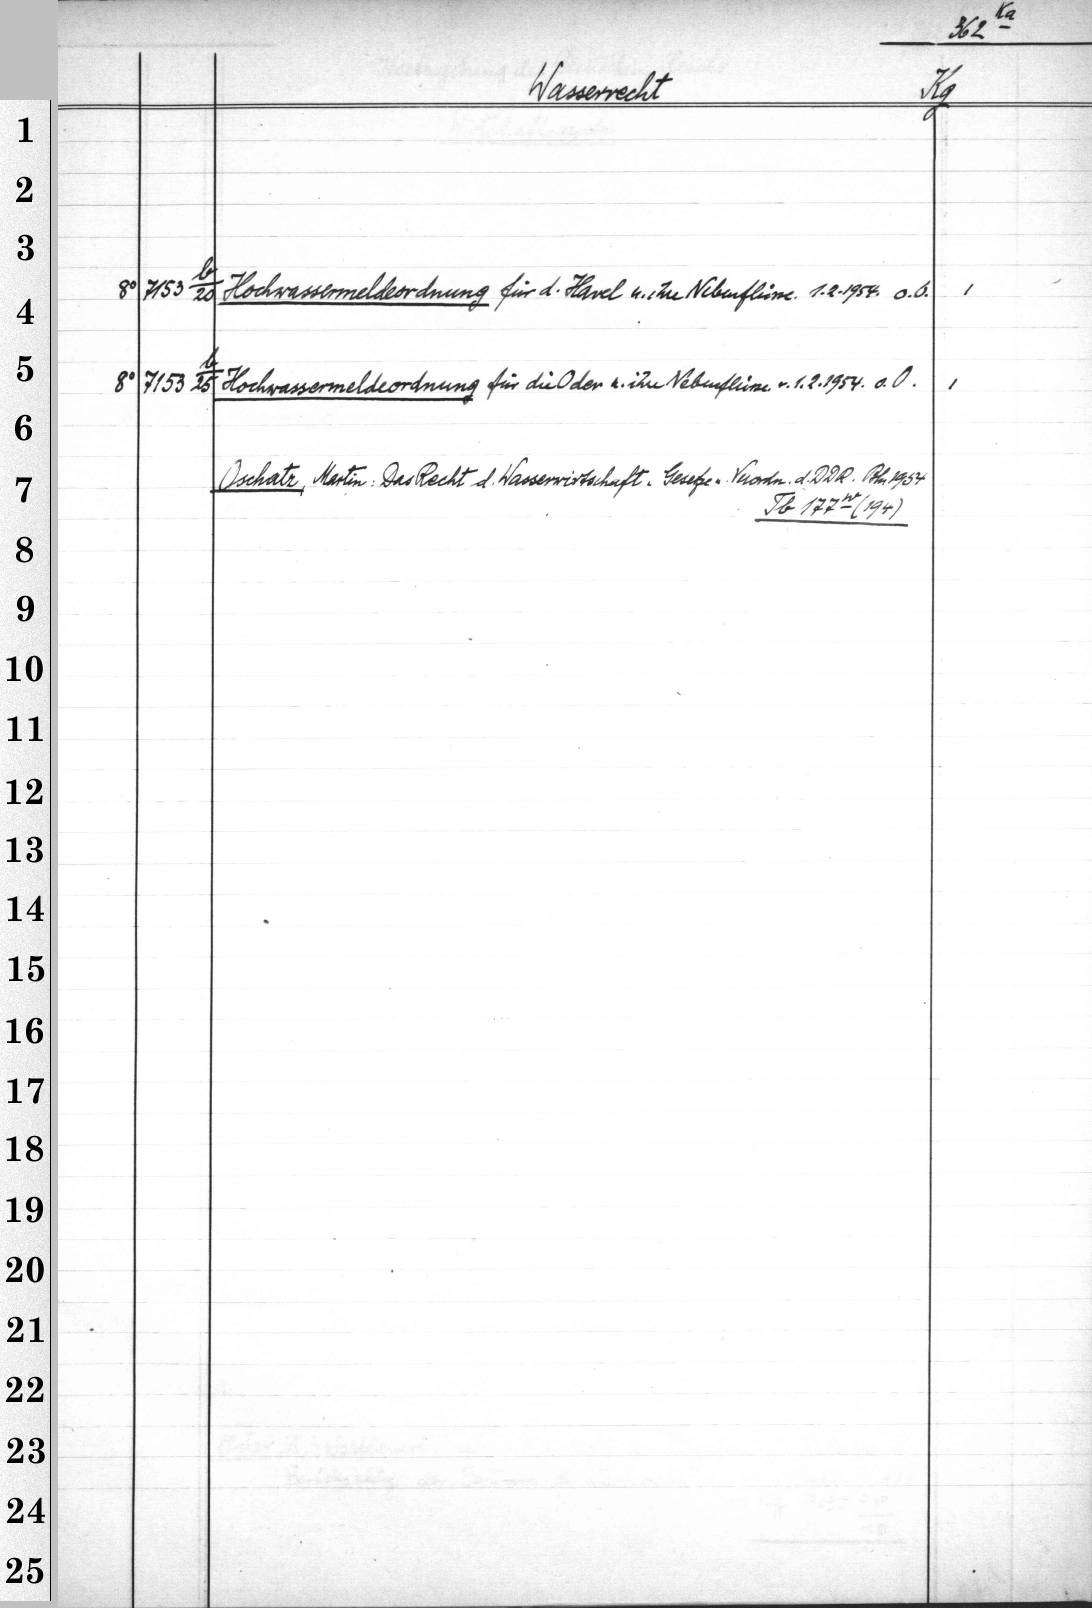 362 Ka
Wasserrecht Kg
1
2
3
8° 7153 b/20 Hochwassermeldeordnung für d. Havel u. ihre Nebenflüsse. 1.2.1954. o.O. 1
4
5
8° 7153 b/25 Hochwassermeldeordnung für die Oder u. ihre Nebenflüsse v. 1.2.1954. o.O. 1
6
Oschatz, Martin: Das Recht d. Wasserwirtschaft. Gesetze u. Verordn. d. DDR. Bln 1954
7
Tb 177 w (194)
8
9
10
11
12
13
14
15
16
17
18
19
20
21
22
23
24
25